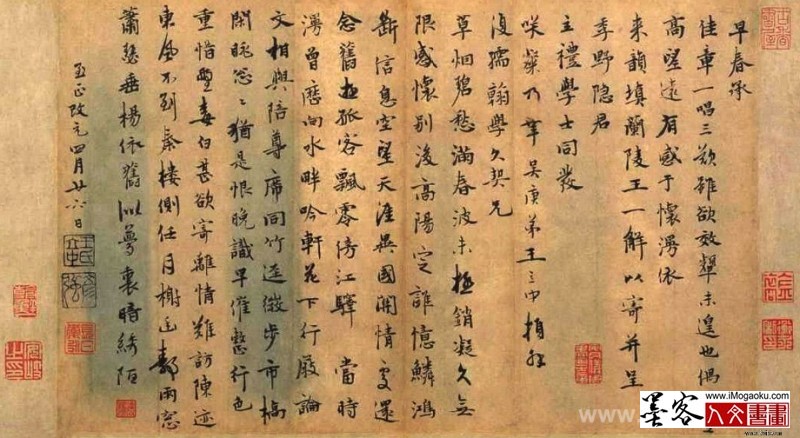 早春承
佳章一唱三歎雖欲效顰未遑也偶
高望遠有感于懷漫依
来韻填蘭陵王一解以寄并呈
季野隐君
主禮學士同發
咲粲乃幸 吴庚弟王立中拜
復孺翰學久契兄
草烟碧愁滿春波未極銷凝久無
限感懷别後高陽定誰憶鱗鴻
斷信息空望天涯異國闗情處還
念舊遊孤客飄零傍江驛 當時
湧曾歷向水畔吟軒花下行廚論
文相與陪尊席同竹逕微步市橋
閑眺忩〻猶是恨晚識早催整行色
重惜鬢毛白甚欲寄離情難訪陳迹
東風不到秦樓側任月榭烟雨窓
蕭瑟垂楊依舊似夢裏時綺陌
至正改元四月廿六日
墨客 人文書畫
www.iMogaoku.com